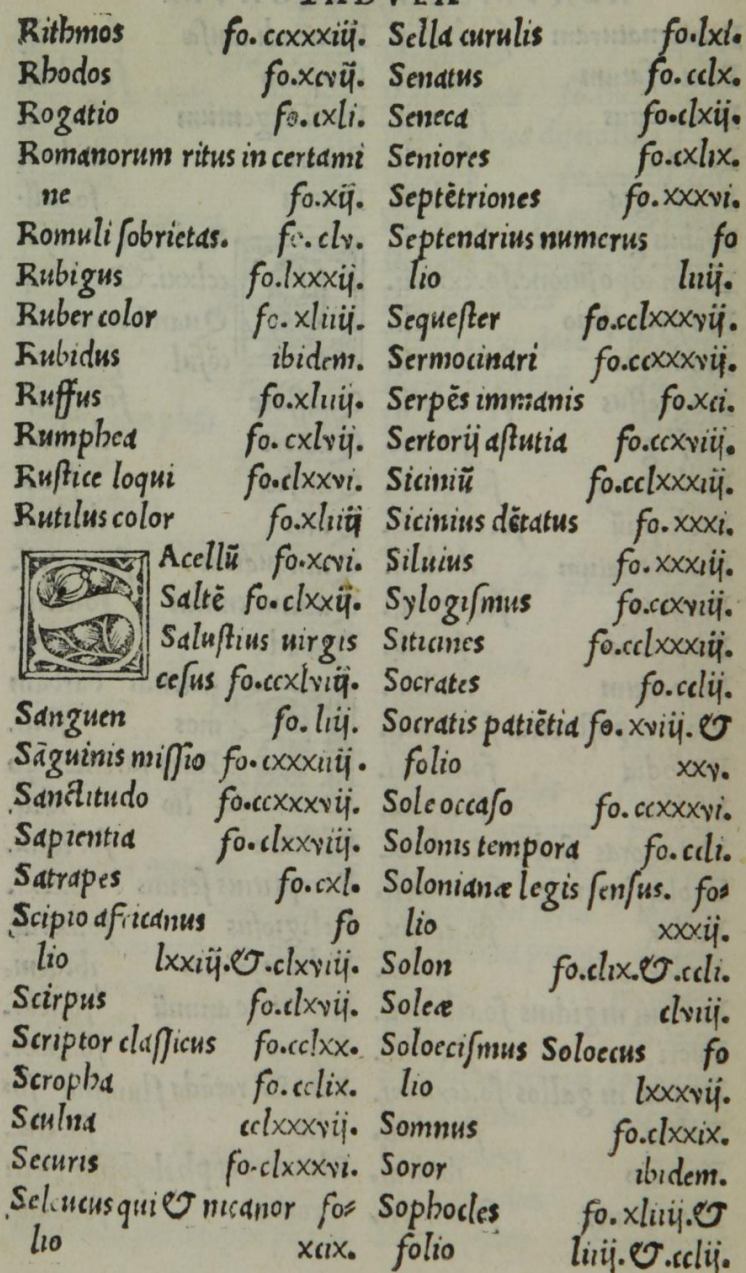 Rithmos fo. ccxxxiij.
Rhodos fo.xcvij.
Rogatio fo.cxli.
Romanorum ritus in certami
ne fo.xij.
Romuli ſobrietas. fo. clv.
Rubigus fo.lxxxij.
Ruber color fo. xliiij.
Rubidus ibidem.
Ruffus fo.xliiij.
Rumphea fo. cxlvij.
Ruſtice loqui fo.clxxvi.
Rutilus color fo.xliiij
SAcellũ fo.xcvi.
Saltẽ fo.clxxij.
Saluſtius uirgis
ceſus fo.ccxlviij.
Sanguen fo. liij.
Sãguinis miſſio fo.cxxxiiij.
Sanctitudo fo.ccxxxvij.
Sapientia fo.clxxviij.
Satrapes fo.cxl.
Scipio africanus fo
lio lxxiij.&.clxviij.
Scirpus fo.clxvij.
Scriptor claſſicus fo.cclxx.
Scropha fo.cclix.
Sculna cclxxxvij.
Securis fo.clxxxvi.
Seleucus qui & nicanor fo⸗
lio xcix.
Sella curulis fo.lxi.
Senatus fo.cclx.
Seneca fo.clxij.
Seniores fo.cxlix.
Septẽtriones fo.xxxvi.
Septenarius numerus fo
lio liiij.
Sequeſter fo.cclxxxvij.
Sermocinari fo.ccxxxvij.
Serpẽs immanis fo.xci.
Sertorij aſtutia fo.ccxviij.
Siciniũ fo.cclxxxiij.
Sicinius dẽtatus fo.xxxi.
Siluius fo.xxxiij.
Sylogiſmus fo.ccxviij.
Siticines fo.cclxxxiij.
Socrates fo.cclij.
Socratis patiẽtia fo.xviij.&
folio xxv.
Sole occaſo fo.ccxxxvi.
Solonis tempora fo.ccli.
Solonianæ legis ſenſus. fo⸗
lio xxxij.
Solon fo.clix.&.ccli.
Soleæ clviij.
Soloeciſmus Soloecus fo
lio lxxxvij.
Somnus fo.clxxix.
Soror ibidem.
Sophocles fo.xliiij.&
folio liiij.&.cclij.